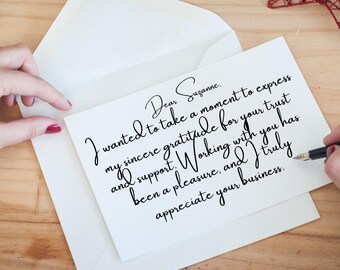 Dear Suzanne,
I wanted to take a moment to express
my sincere gratitude for your trust
and support. Working with you has
been a pleasure, and I truly
appreciate your business.